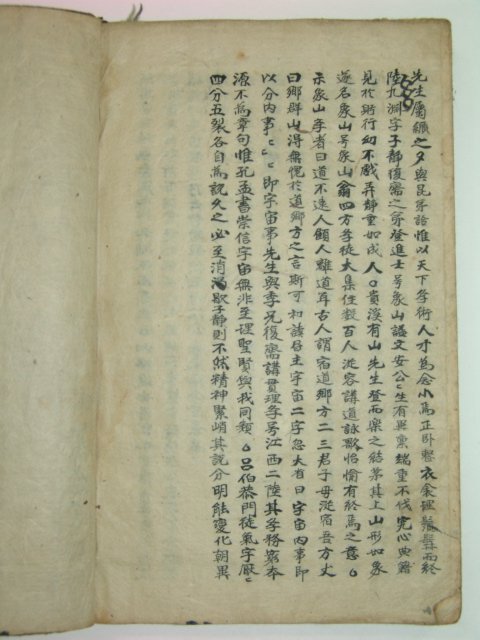 先生屬纊之夕與昆弟語惟以天下學術人才爲念小焉正卧整衣衾理鬚髯而終
陸九淵字子靜復齋之弟登進士号象山諡文安公〻生有異稟端重不伐究心典籍
見於踐行幼不戱弄靜重如成人○貴溪有山先生登而樂之結茅其上山形如象
遂名象山号象山翁四方學徒大集住數百人從容講道詠歌怡愉有終焉之意○
示象山學者曰道不遠人顧人離道耳古人謂宿道鄉方二三君子毋從宿吾方丈
曰鄉群山得無愧於道鄉方之言斯可初讀居主宇宙二字忽大省曰宇宙內事即
以分內事〻〻即宇宙事先生與季兄復齋講貫理學号江西二陸其學務窮本
源不爲章句惟孔孟書崇信宇宙無非至理聖賢與我同類○呂伯恭門徒氣宇厭〻
四分五裂各自爲說久之必至消歇子靜則不然精神緊峭其說分明能變化朝異